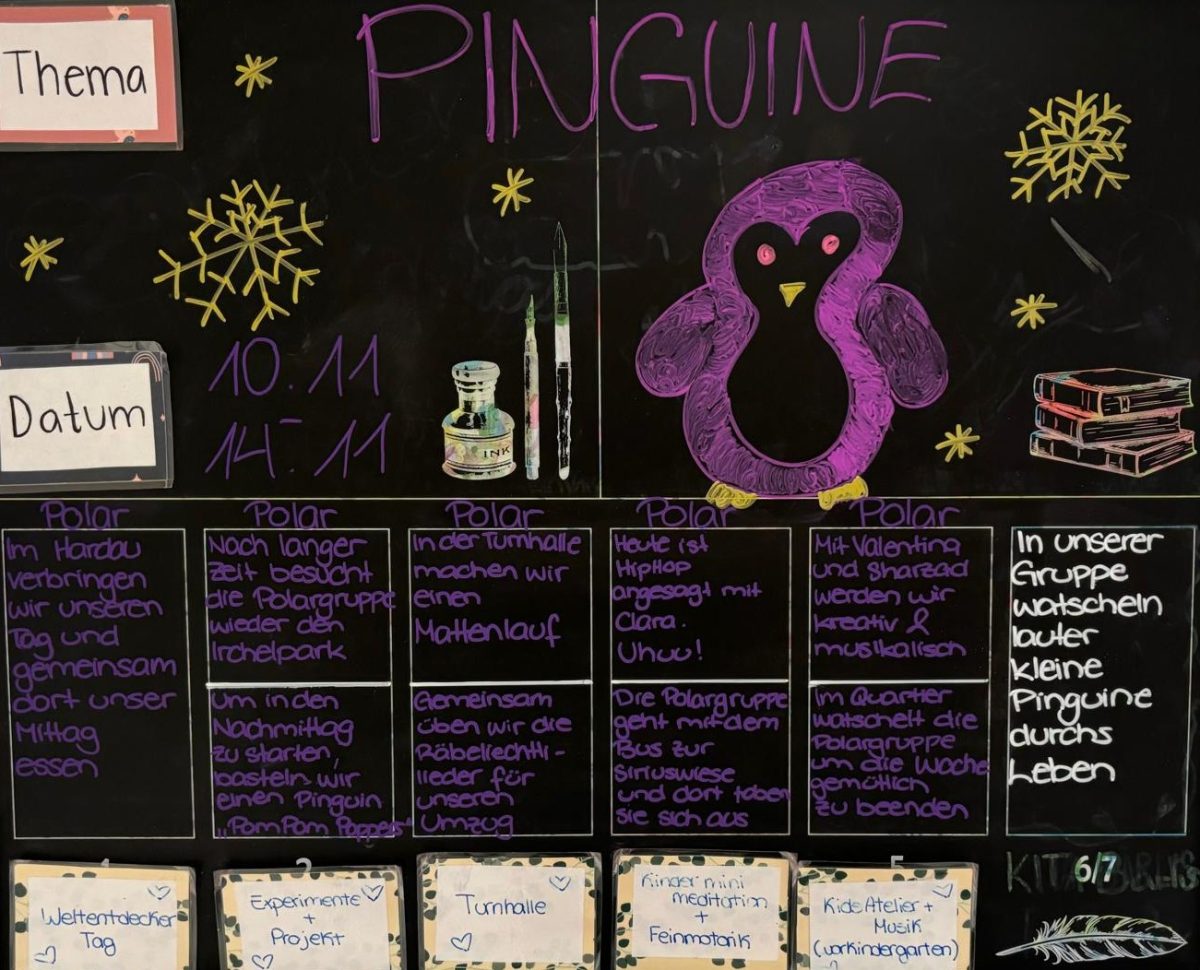 Thema
PINGUINE
Datum
10.11
-
14.11
INK
Polar
Im Hardau
verbringen
wir unseren
Tag und
gemeinsam
dort unser
Mittag
essen
Polar
Nach langer
Zeit besucht
die Polargruppe
wieder den
Irchelpark
Um in den
Nachmittag
zu starten,
basteln wir
einen Pinguin
„PomPom Poppers"
Polar
In der Turnhalle
machen wir
einen
Mattenlauf
Gemeinsam
üben wir die
Räbeliechtli-
lieder für
unseren
Umzug
Polar
Heute ist
HipHop
angesagt mit
Clara.
Uhuu!
Die Polargruppe
geht mit dem
Bus zur
Siriuswiese
und dort toben
sie sich aus
Polar
Mit Valentina
und Sharzad
werden wir
kreativ &
musikalisch
Im Quartier
watschelt die
Polargruppe
um die Woche
gemütlich
zu beenden
In unserer
Gruppe
watscheln
lauter
kleine
Pinguine
durchs
Leben
Weltentdecker
Tag
Experimente
+
Projekt
Turnhalle
Kinder mini
meditation
+
Feinmotorik
Kids Atelier +
Musik
(vorkindergarten)
KITA
6/7